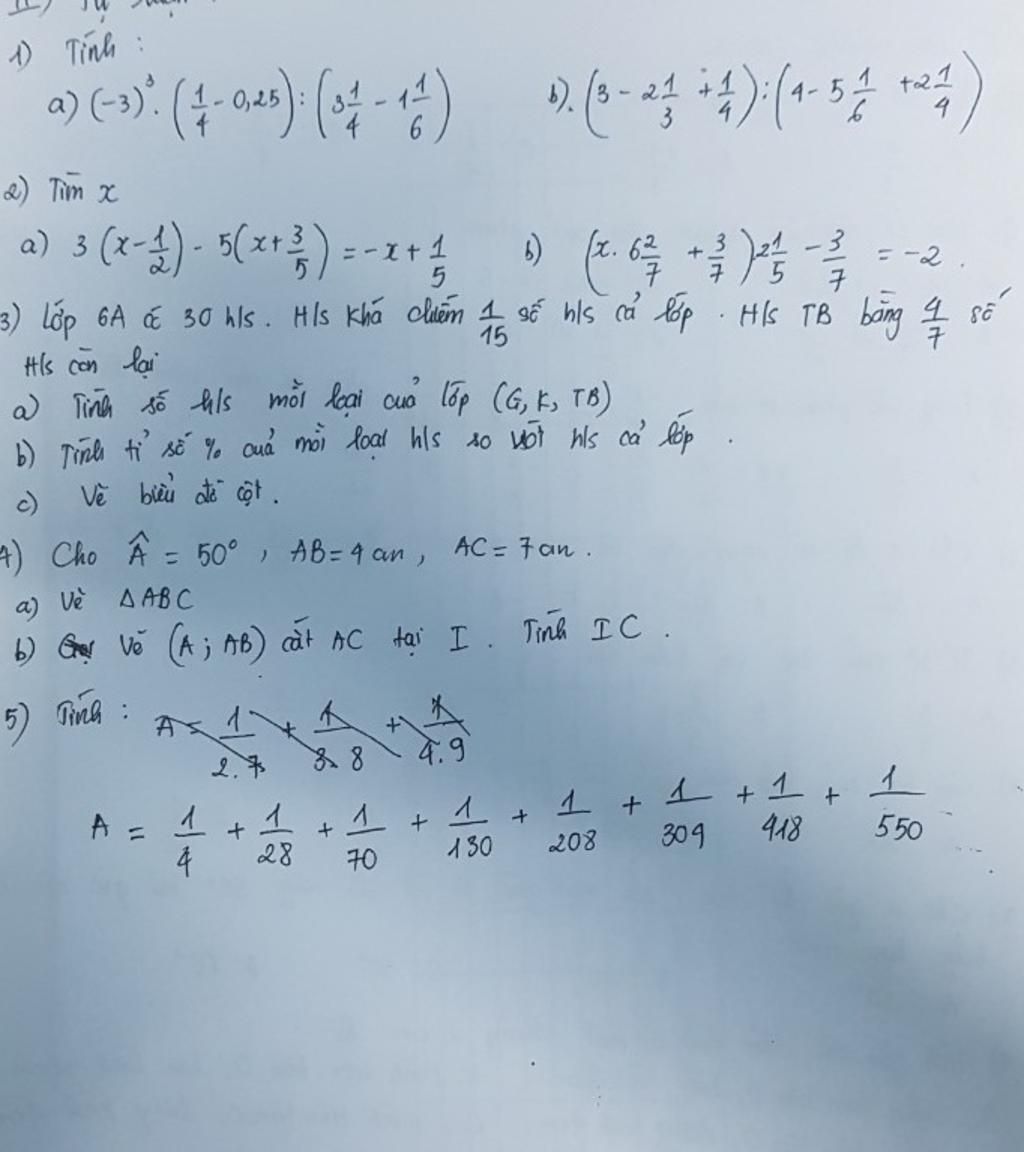 II) Tự luận
1) Tính :
a) (-3)³ . (1/4 - 0,25) : (3 1/4 - 1 1/6) b). (3 - 2 1/3 + 1/4) : (4 - 5 1/6 + 2 1/4)
2) Tìm x
a) 3 (x - 1/2) - 5(x + 3/5) = -x + 1/5 b) (x. 6 2/7 + 3/7) 2 1/5 - 3/7 = -2 .
3) Lớp 6A có 30 h/s . H/s Khá chiếm 1/15 số h/s cả lớp . H/s TB bằng 4/7 số
H/s còn lại
a) Tính số h/s mỗi loại của lớp (G, K, TB)
b) Tính tỉ số % của mỗi loại h/s so với h/s cả lớp .
c) Vẽ biểu đồ cột .
4) Cho Â = 50° , AB = 4 cm , AC = 7 cm .
a) Vẽ ΔABC
b) Vẽ (A ; AB) cắt AC tại I . Tính IC .
5) Tính : A = 1/2.7 + 1/3.8 + 1/4.9
A = 1/4 + 1/28 + 1/70 + 1/130 + 1/208 + 1/304 + 1/418 + 1/550